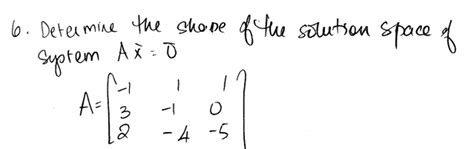 6. Determine the shape of the solution space of
system A x̄ = 0̄
A = [ -1 1 1
3 -1 0
2 -4 -5 ]